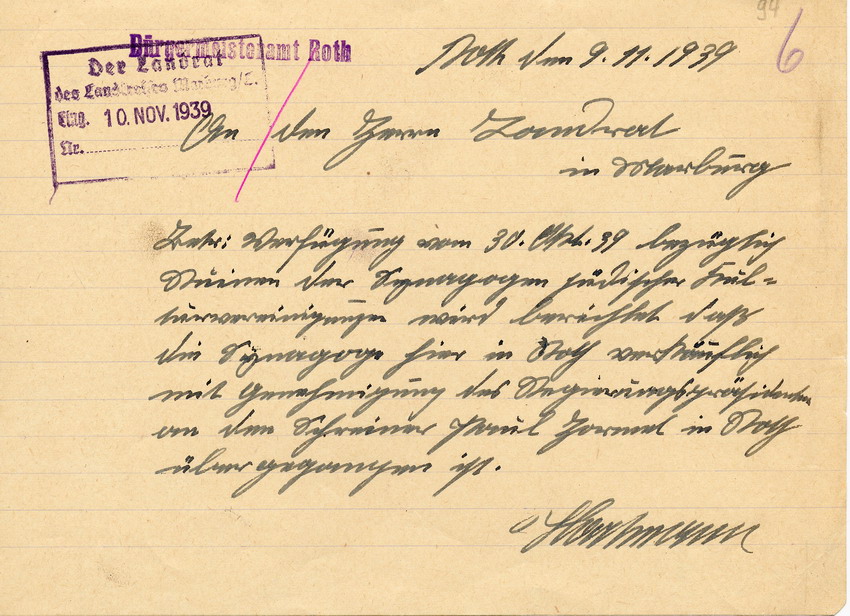 94
6
Bürgermeisteramt Roth
Der Landrat
des Landkreises Marburg/L.
Eing. 10. NOV. 1939
Nr.
Roth den 9. 11. 1939
An den Herrn Landrat
in Marburg
Betr: Verfügung vom 30. Okt. 39 bezüglich
Ruinen der Synagogen jüdischer Kul=
turvereinigungen wird berichtet daß
die Synagoge hier in Roth verkäuflich
mit Genehmigung des Regierungspräsidenten
an den Schreiner Paul Hormel in Roth
übergegangen ist.